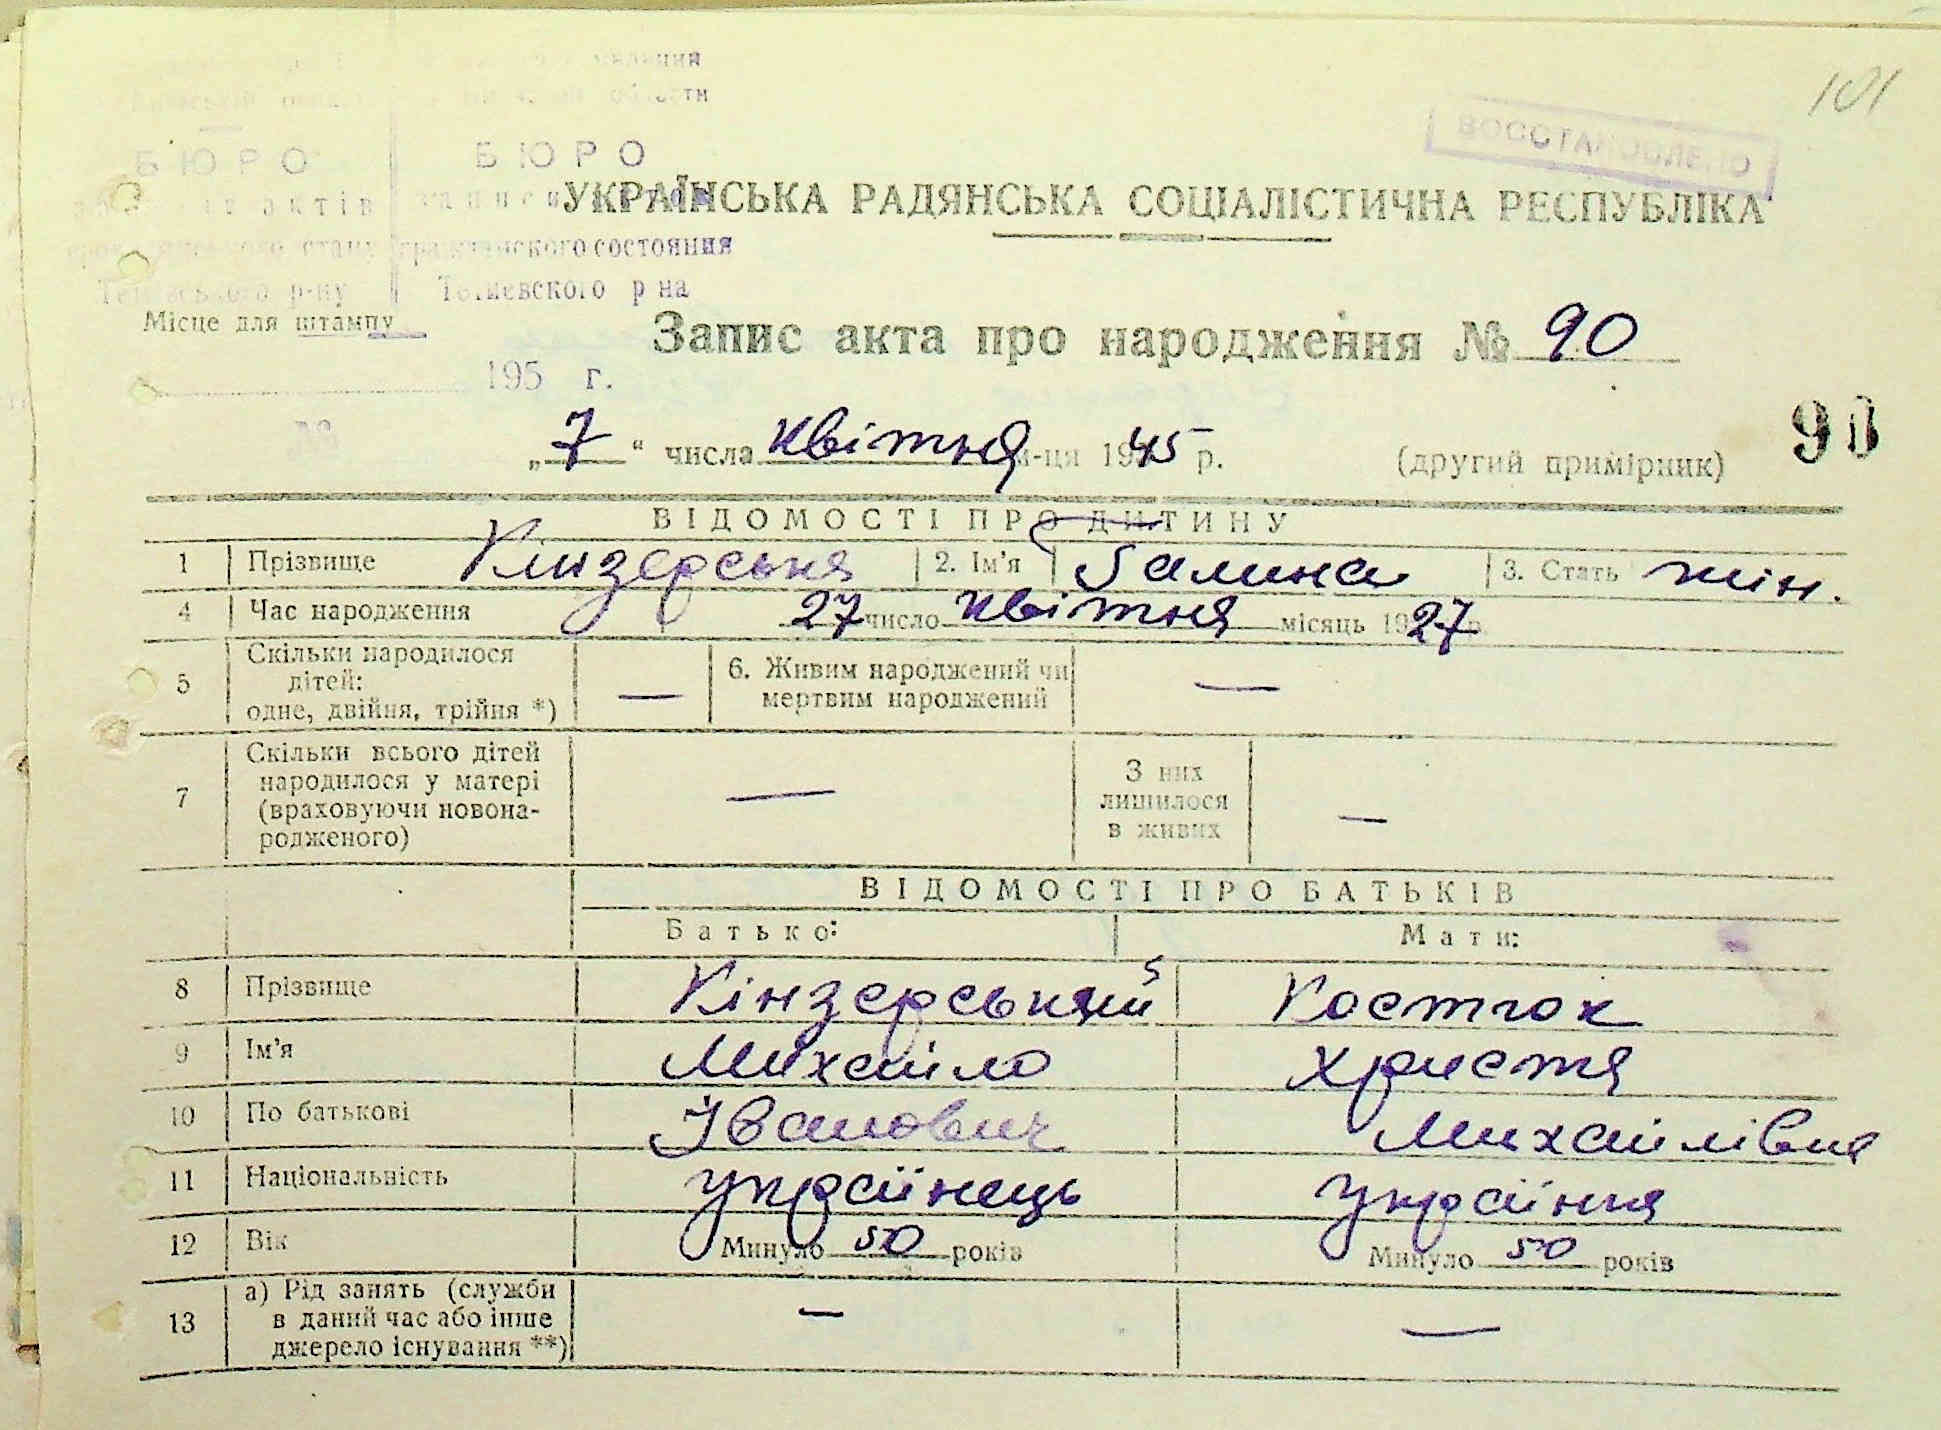 101
ВОССТАНОВЛЕНО
БЮРО БЮРО
актів записи актов
гражданского состояния
Тетіївського р-ну Тетиевского р на
УКРАЇНСЬКА РАДЯНСЬКА СОЦІАЛІСТИЧНА РЕСПУБЛІКА
Місце для штампу
Запис акта про народження № 90
195 г.
№
90
„7“ числа квітня м-ця 1945 р. (другий примірник)
ВІДОМОСТІ ПРО ДИТИНУ
1 Прізвище Кінзерська 2. Ім'я Галина 3. Стать жін.
4 Час народження 27 число квітня місяць 1927 р.
5 Скільки народилося дітей: одне, двійня, трійня *) — 6. Живим народжений чи мертвим народжений —
7 Скільки всього дітей народилося у матері (враховуючи новонародженого) — З них лишилося в живих —
ВІДОМОСТІ ПРО БАТЬКІВ
Батько: Мати:
8 Прізвище Кінзерський Костюк
9 Ім'я Михайло Христя
10 По батькові Іванович Михайлівна
11 Національність українець українка
12 Вік Минуло 50 років Минуло 50 років
13 а) Рід занять (служби в даний час або інше джерело існування **) — —